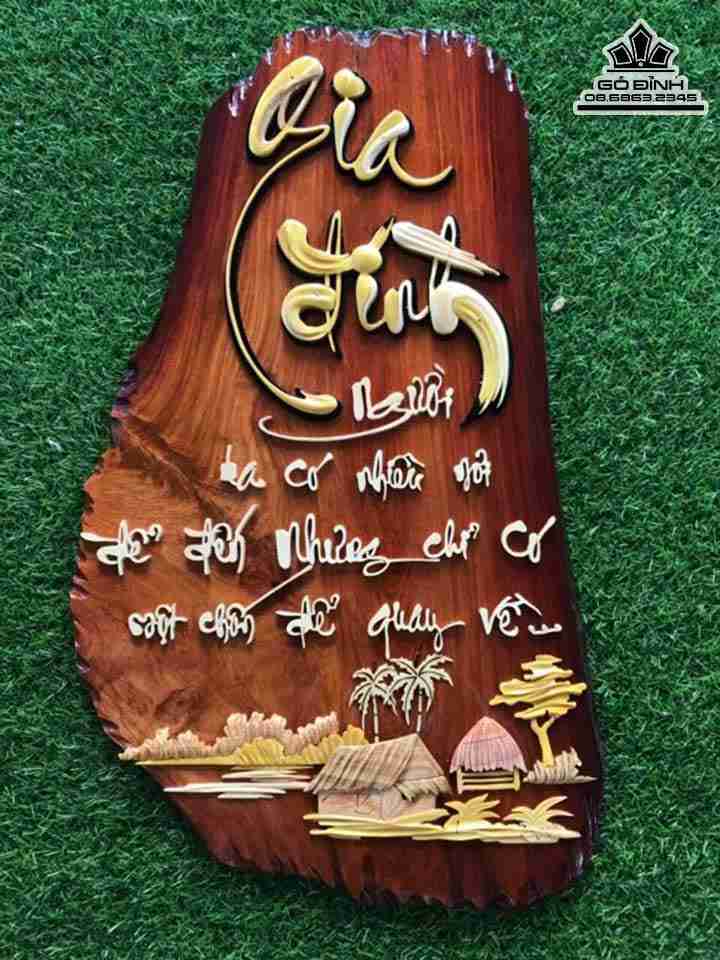 GỖ ĐỈNH
08.6963.2345
Gia
đình
Người
ta có nhiều nơi
để đến Nhưng chỉ có
một chốn để quay về...